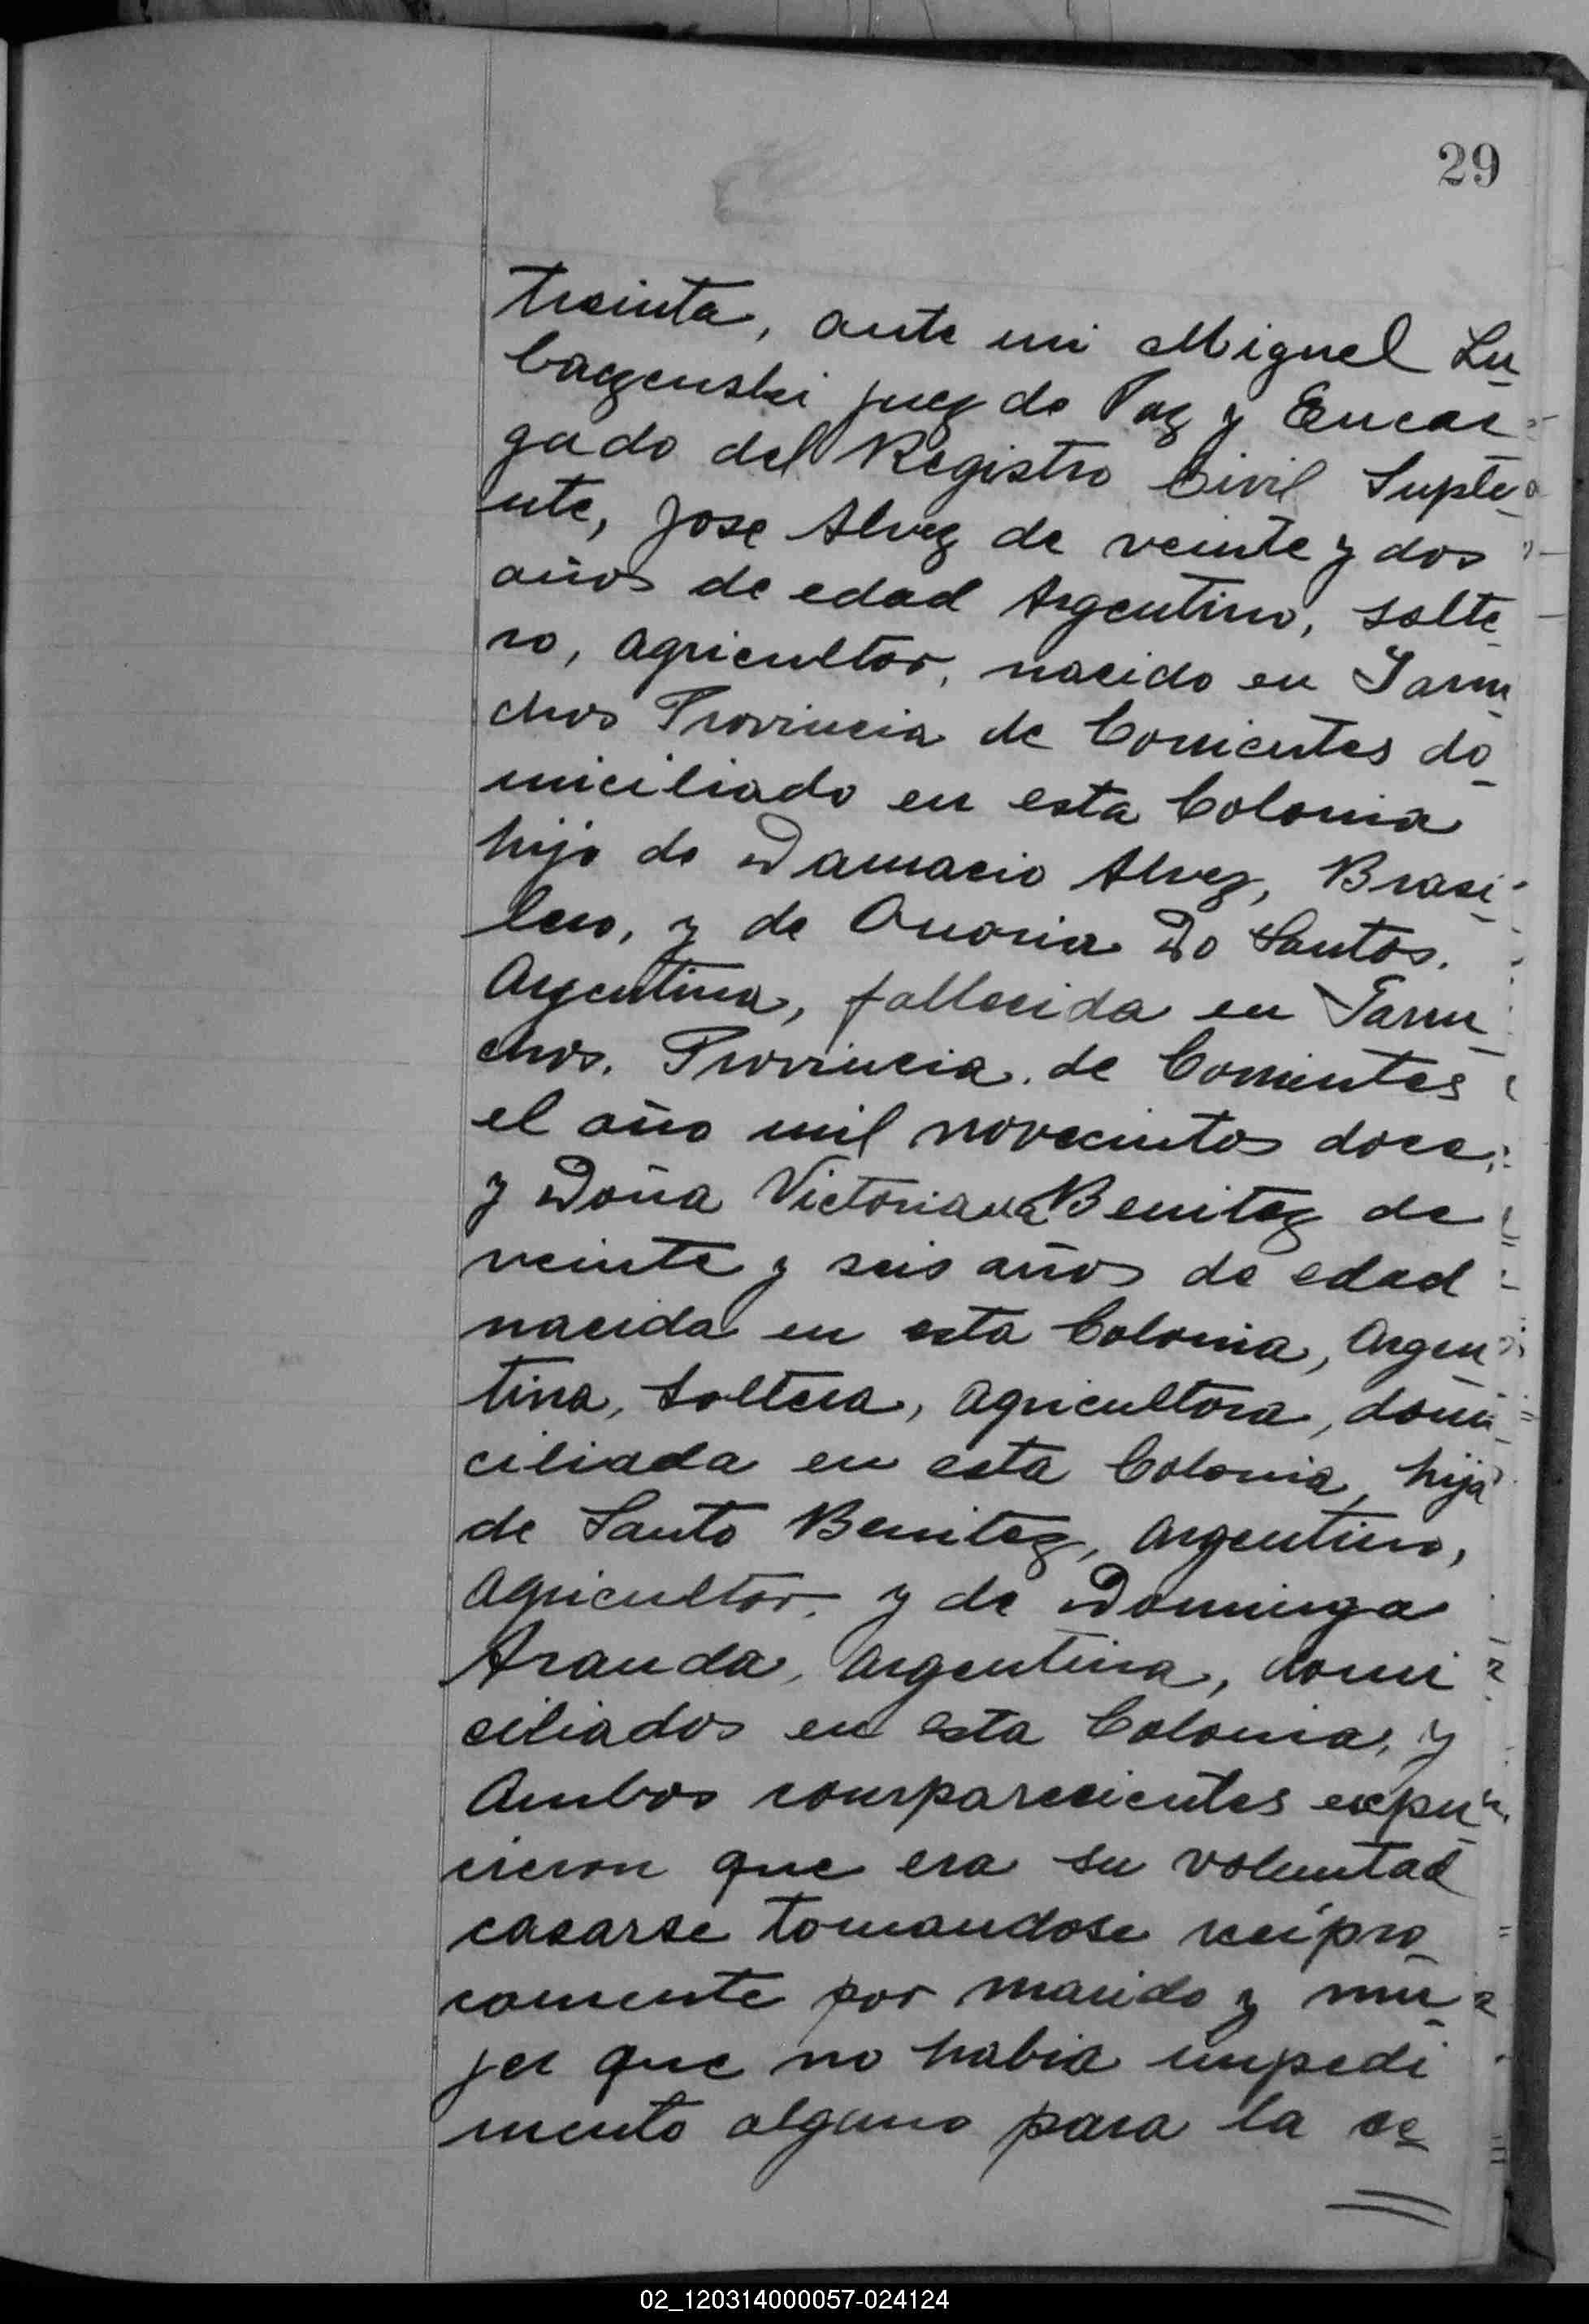 29
treinta, ante mi Miguel Lu-
baczenski juez de Paz y Encar-
gado del Registro Civil Suple-
nte, Jose Alvez de veinte y dos
años de edad Argentino, solte-
ro, agricultor, nacido en Garru-
chos Provincia de Corrientes do-
miciliado en esta Colonia
hijo de Damacio Alvez, Brasi-
lero, y de Onoria Do Santos.
Argentina, fallecida en Garru-
chos. Provincia. de Corrientes
el año mil novecientos doce,
y Doña Victoriana Benitez de
veinte y seis años de edad
nacida en esta Colonia, Argen-
tina, soltera, agricultora, domi-
ciliada en esta Colonia, hija
de Santo Benitez, argentino,
agricultor, y de Dominga
Aranda, argentina, domi
ciliados en esta Colonia, y
Ambos comparecientes expu-
cieron que era su voluntad
casarse tomandose recipro-
camente por marido y mu-
jer que no habia impedi
mento alguno para la ce-
02_120314000057-024124